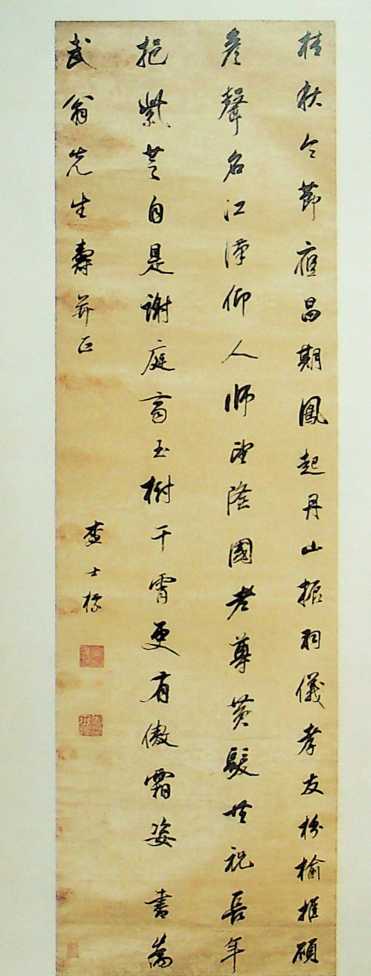 桂秋令節應昌期鳳起丹山振羽儀孝友枌榆推碩
彥聲名江漢仰人師望隆國老尊黃髮共祝長年
挹紫芝自是謝庭玉樹干霄更有傲霜姿書為
武翁先生壽并正
查士標